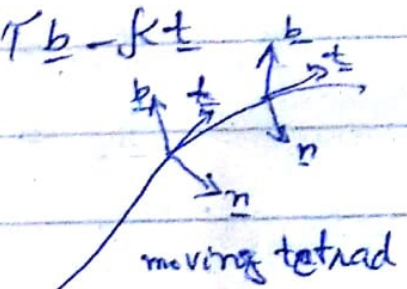 τ b - κ t
b t b t
n n
moving tetrad